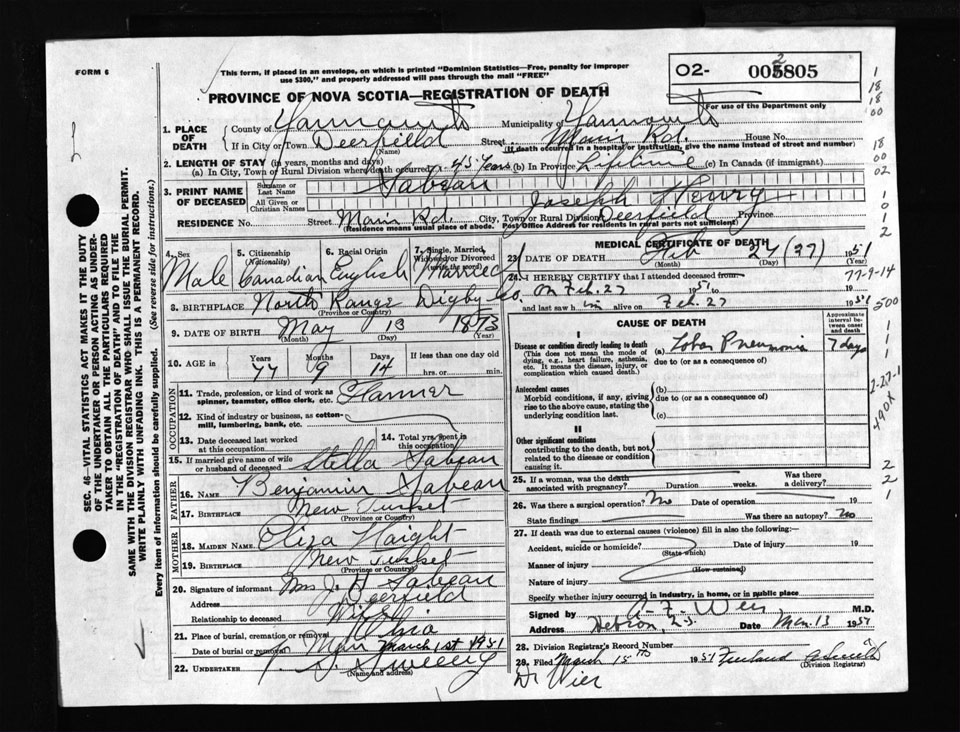 FORM 6
This form, if placed in an envelope, on which is printed "Dominion Statistics—Free, penalty for improper
use $300," and properly addressed will pass through the mail "FREE"
PROVINCE OF NOVA SCOTIA—REGISTRATION OF DEATH
02- 005805
2
For use of the Department only
1. PLACE OF DEATH
County of Yarmouth Municipality of Yarmouth
If in City or Town Deerfield Street Main Rd. House No.
(Name) (If death occurred in a hospital or institution, give the name instead of street and number)
2. LENGTH OF STAY (in years, months and days)
(a) In City, Town or Rural Division where death occurred 45 Years (b) In Province Lifetime (c) In Canada (if immigrant)
3. PRINT NAME OF DECEASED
Surname or Last Name Sabean
All Given or Christian Names Joseph Henry
RESIDENCE No. Street Main Rd. City, Town or Rural Division Deerfield Province
(Residence means usual place of abode. Post Office Address for residents in rural parts not sufficient)
4. Sex Male
5. Citizenship (Nationality) Canadian
6. Racial Origin English
7. Single, Married, Widowed or Divorced (Write the word) Married
8. BIRTHPLACE North Range Digby Co.
(Province or Country)
9. DATE OF BIRTH May 13 1873
(Month) (Day) (Year)
10. AGE in Years 77 Months 9 Days 14 If less than one day old hrs. or min.
OCCUPATION
11. Trade, profession, or kind of work as spinner, teamster, office clerk, etc. Farmer
12. Kind of industry or business, as cotton-mill, lumbering, bank, etc.
13. Date deceased last worked at this occupation
14. Total yrs. spent in this occupation
15. If married give name of wife or husband of deceased Stella Sabean
FATHER
16. NAME Benjamin Sabean
17. BIRTHPLACE New Tusket
(Province or Country)
MOTHER
18. MAIDEN NAME Eliza Haight
19. BIRTHPLACE New Tusket
(Province or Country)
20. Signature of informant Mrs J. H Sabean
Address Deerfield
Relationship to deceased Wife
21. Place of burial, cremation or removal Ohio
Date of burial or removal March 1st 1951
22. UNDERTAKER Sweeny
(Name and address)
MEDICAL CERTIFICATE OF DEATH
23. DATE OF DEATH Feb 27 (27) 1951
(Month) (Day) (Year)
24. I HEREBY CERTIFY that I attended deceased from
on Feb. 27 1951 to 19
and last saw him alive on Feb. 27 1951
CAUSE OF DEATH
Approximate interval between onset and death
I
Disease or condition directly leading to death
(This does not mean the mode of dying, e.g., heart failure, asthenia, etc. It means the disease, injury, or complication which caused death.)
(a) Lobar Pneumonia 7 days
due to (or as a consequence of)
Antecedent causes
Morbid conditions, if any, giving rise to the above cause, stating the underlying condition last.
(b)
due to (or as a consequence of)
(c)
II
Other significant conditions
contributing to the death, but not related to the disease or condition causing it.
25. If a woman, was the death associated with pregnancy? Duration weeks. Was there a delivery?
26. Was there a surgical operation? No Date of operation 19
State findings Was there an autopsy? No
27. If death was due to external causes (violence) fill in also the following:—
Accident, suicide or homicide? Date of injury 19
(State which)
Manner of injury
(How sustained)
Nature of injury
Specify whether injury occurred in industry, in home, or in public place
Signed by A. F. Weir M.D.
Address Hebron, N.S. Date Mar. 13 1951
28. Division Registrar's Record Number
29. Filed March 15th 1951
(Division Registrar)
Dr Wier
SEC. 46- VITAL STATISTICS ACT MAKES IT THE DUTY
OF THE UNDERTAKER OR PERSON ACTING AS UNDER-
TAKER TO OBTAIN ALL THE PARTICULARS REQUIRED
IN THE "REGISTRATION OF DEATH" AND TO FILE THE
SAME WITH THE DIVISION REGISTRAR WHO SHALL ISSUE THE BURIAL PERMIT.
WRITE PLAINLY WITH UNFADING INK. THIS IS A PERMANENT RECORD.
Every item of information should be carefully supplied. (See reverse side for instructions.)
1
18
18
00
18
00
02
1
0
1
2
77-9-14
500
1
1
1
2-27-1
490X
2
2
1